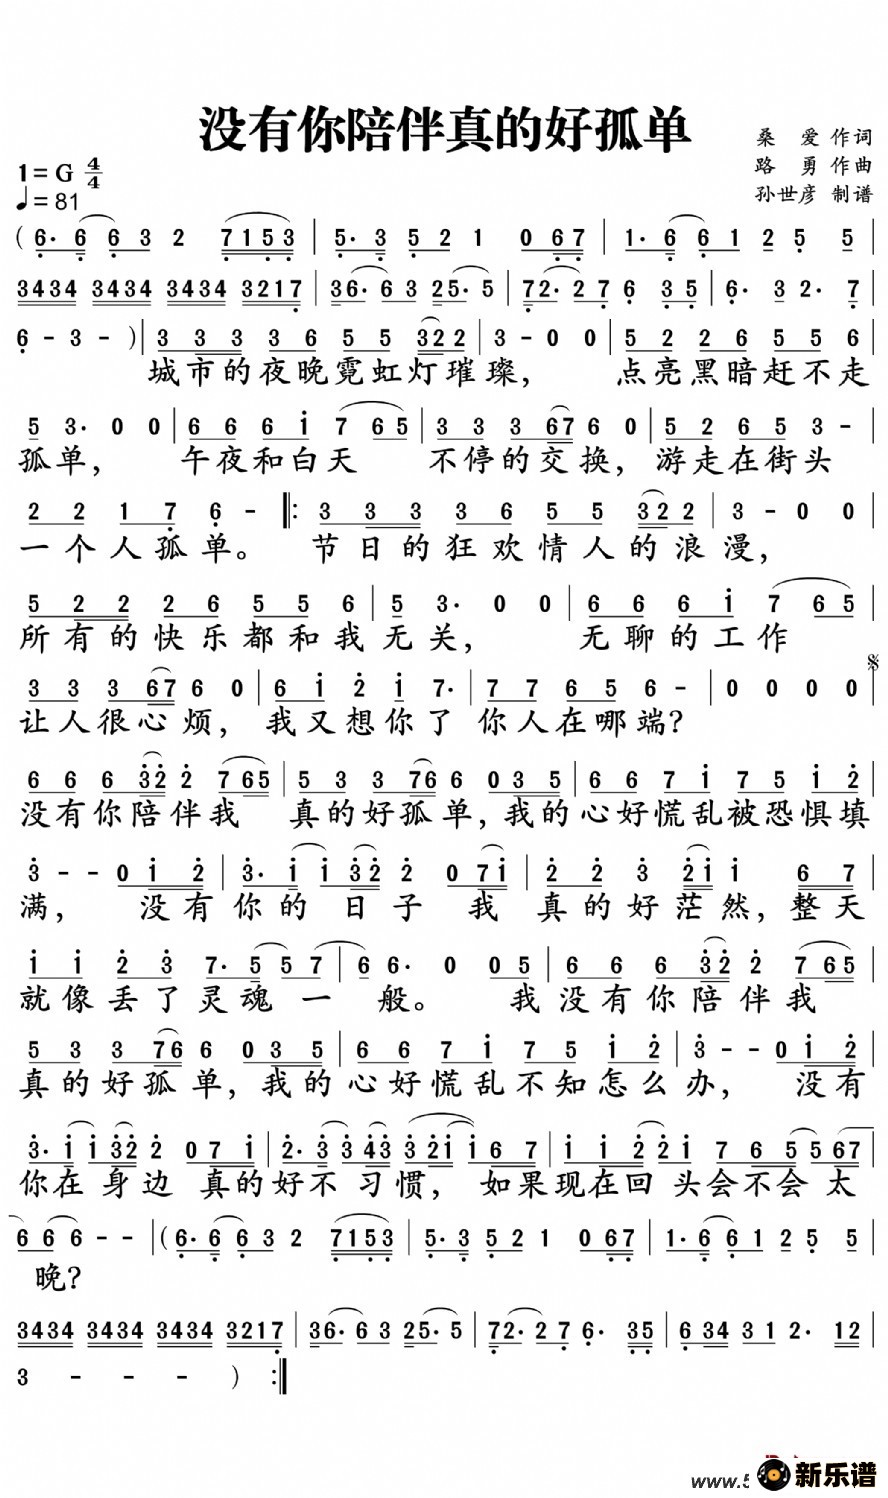 没有你陪伴真的好孤单
桑 爱 作词
1=G 4/4
路 勇 作曲
♩=81
孙世彦 制谱
(6· 6 6 3 2 7153 | 5· 3 5 2 1 0 67 | 1· 6 6 1 2 5 5 |
3434 3434 3434 3217 | 36· 6 3 25· 5 | 72· 2 7 6 3 5 | 6· 3 2· 7 |
6 - 3 - ) | 3 3 3 3 6 5 5 322 | 3 - 0 0 | 5 2 2 6 5 5 6
城市的夜晚霓虹灯璀璨， 点亮黑暗赶不走
5 3· 0 0 | 6 6 6 i 7 65 | 3 3 3 67 6 0 | 5 2 6 5 3 -
孤单， 午夜和白天 不停的交换，游走在街头
2 2 1 7 6 - ‖: 3 3 3 3 6 5 5 322 | 3 - 0 0
一个人孤单。 节日的狂欢情人的浪漫，
5 2 2 2 6 5 5 6 | 5 3· 0 0 | 6 6 6 i 7 65
所有的快乐都和我无关， 无聊的工作
3 3 3 67 6 0 | 6 i 2 i 7· | 7 7 6 5 6 - | 0 0 0 0
让人很心烦，我又想你了 你人在哪端？
6 6 6 32 2 7 65 | 5 3 3 76 6 0 3 5 | 6 6 7 i 7 5 i 2
没有你陪伴我 真的好孤单，我的心好慌乱被恐惧填
3 - - 0 i 2 | 3· i i 32 2 0 7i | 2 2 3 2i i 6 7
满， 没有你的日子 我 真的好茫然，整天
i i 2 3 7· 5 5 7 | 6 6· 0 0 5 | 6 6 6 32 2 7 65
就像丢了灵魂一 般。 我没有你陪伴我
5 3 3 76 6 0 3 5 | 6 6 7 i 7 5 i 2 | 3 - - 0 i 2
真的好孤单，我的心好慌乱不知怎么办， 没有
3· i i 32 2 0 7 i | 2· 3 3 43 3 2i i 6 7 | i i 2 2 i 7 6 5 5 67
你在身边 真的好不习惯， 如果现在回头会不会太
6 6 6 - - | (6· 6 6 3 2 7153 | 5· 3 5 2 1 0 67 | 1· 6 6 1 2 5 5
晚？
3434 3434 3434 3217 | 36· 6 3 25· 5 | 72· 2 7 6· 35 | 6 34 3 1 2· 12
3 - - - ) :‖
www.5
新乐谱